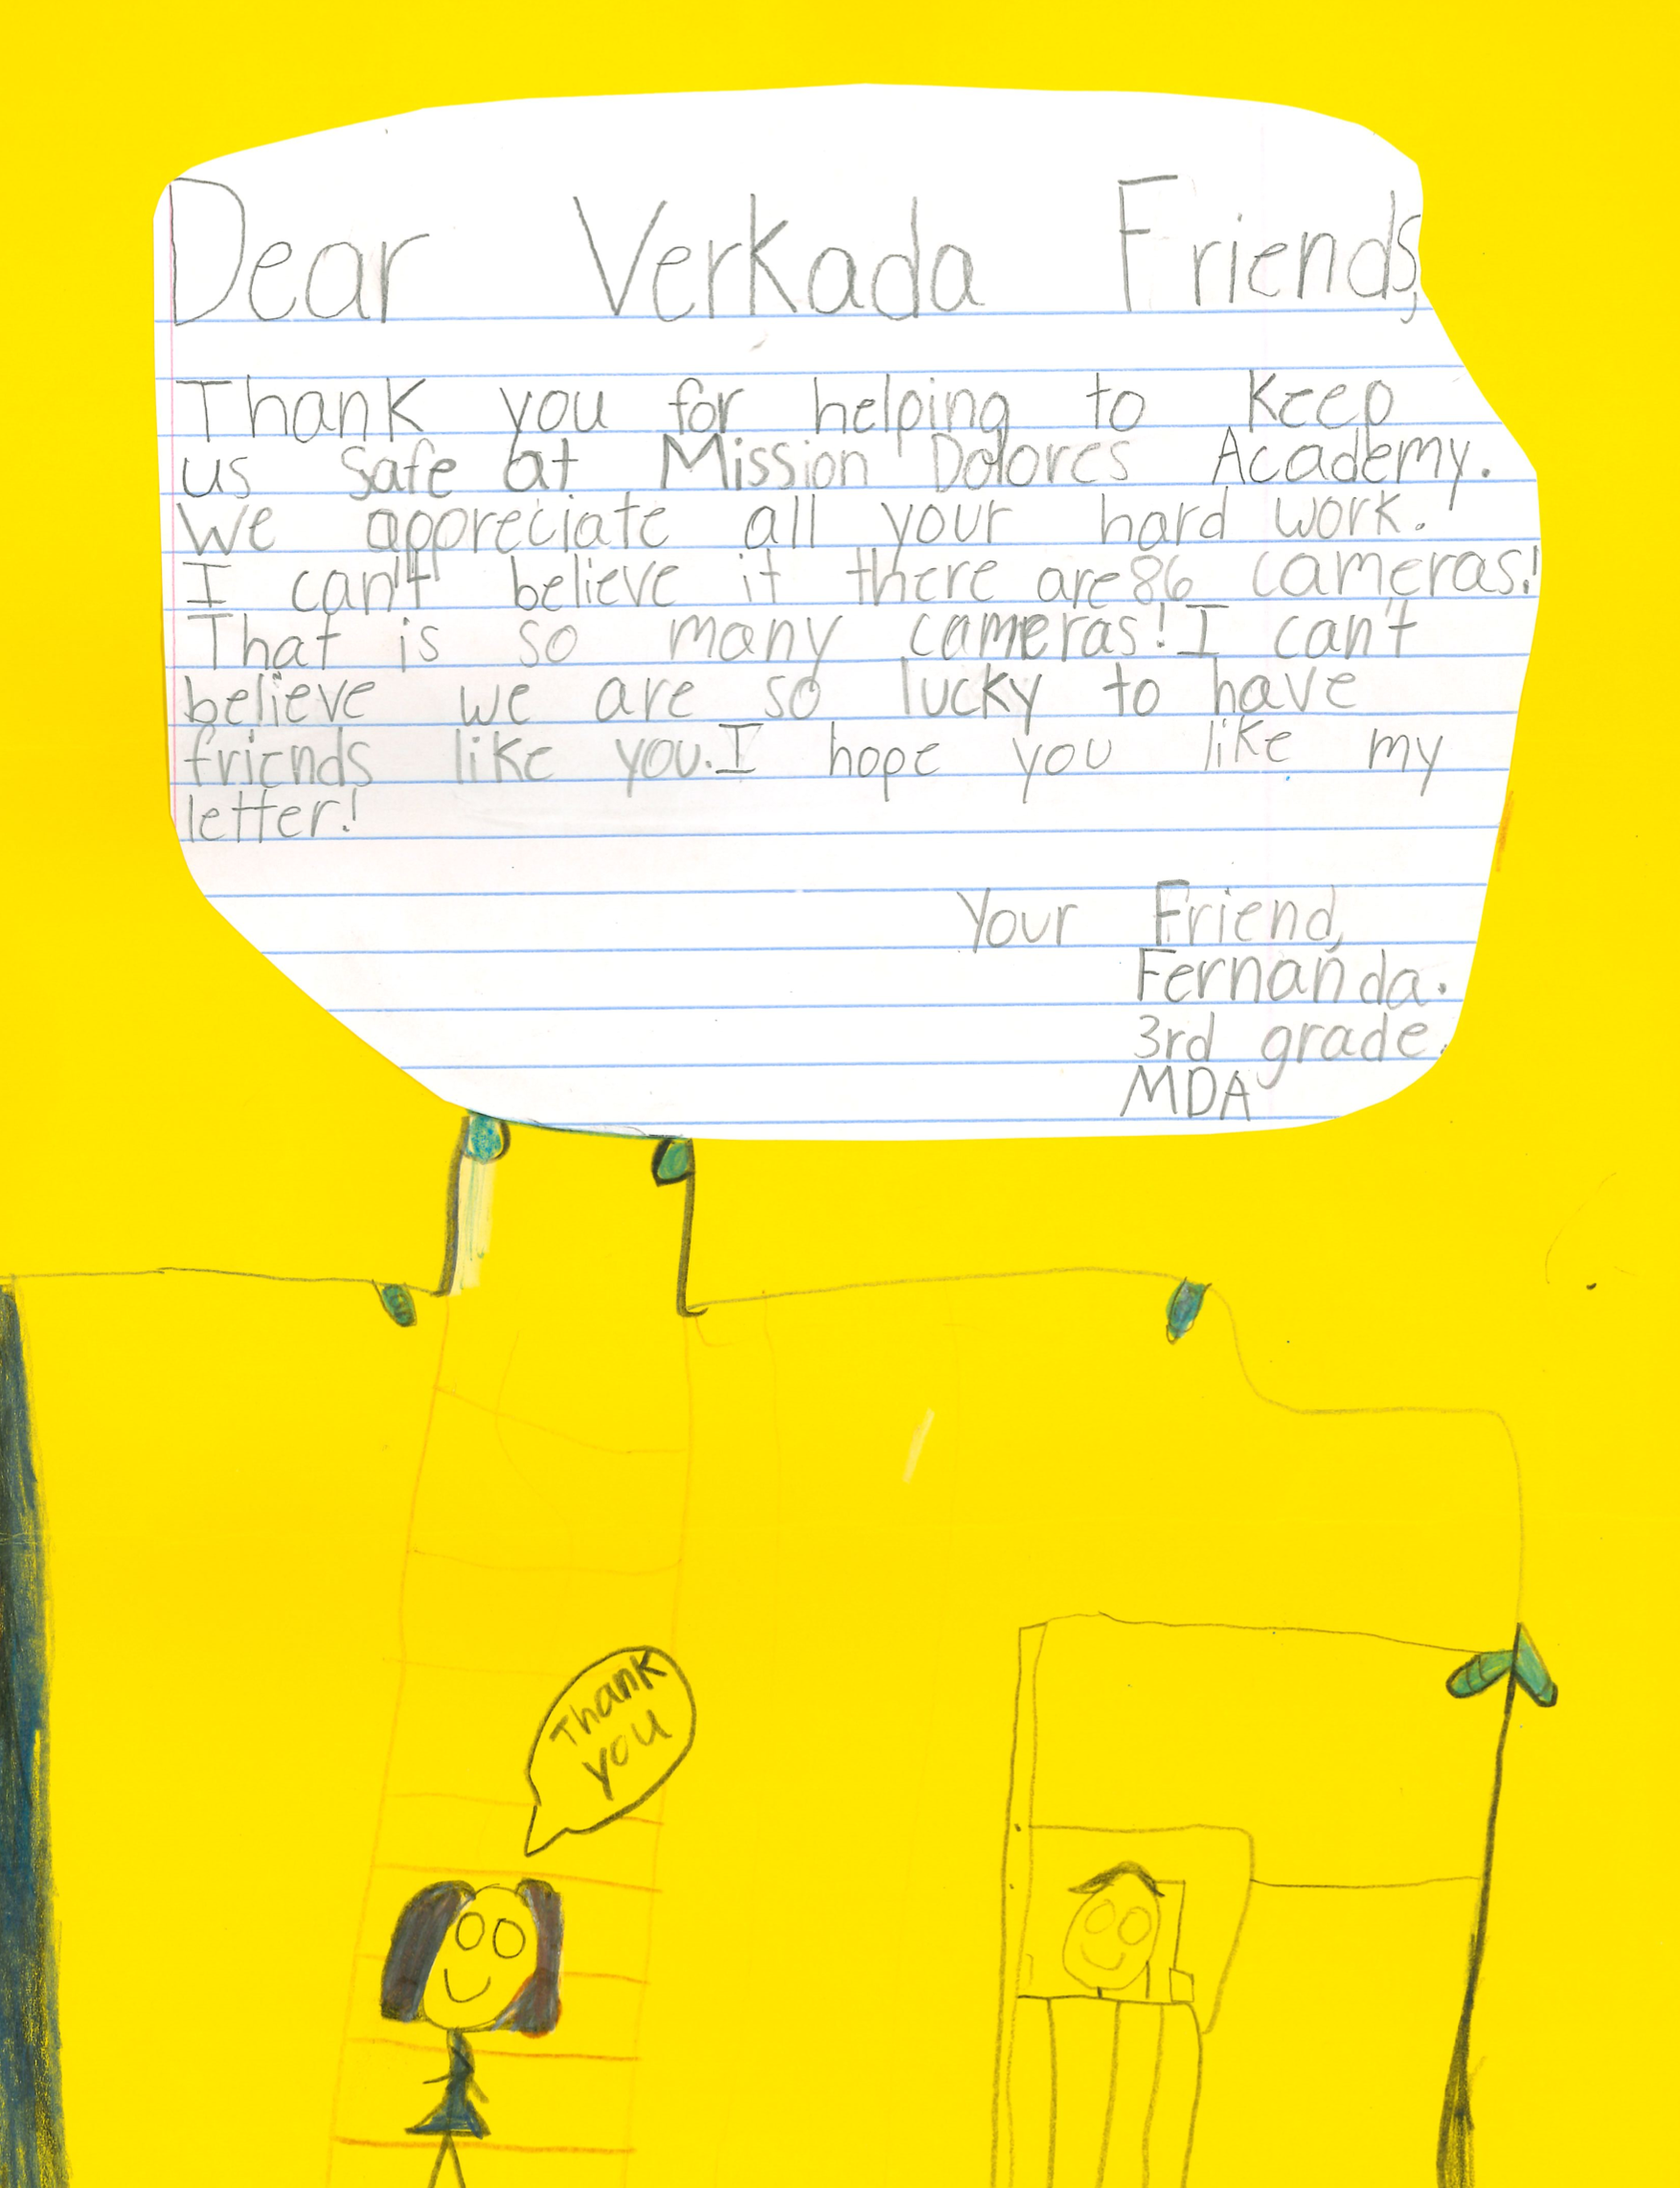 Dear Verkada Friends,
Thank you for helping to keep
us safe at Mission Dolores Academy.
We appreciate all your hard work.
I can't believe it there are 86 cameras!
That is so many cameras! I can't
believe we are so lucky to have
friends like you. I hope you like my
letter!
Your Friend,
Fernanda.
3rd grade.
MDA
Thank
you